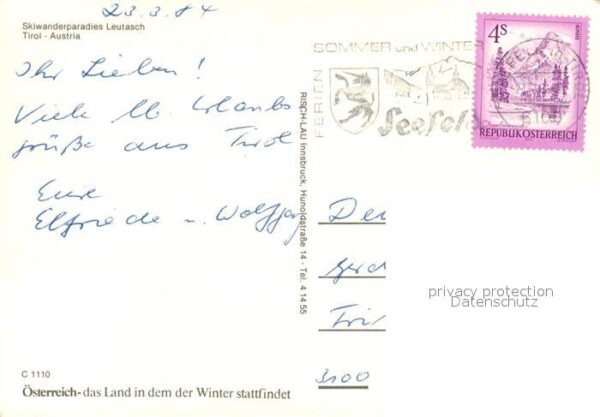 23.3.84
Skiwanderparadies Leutasch
Tirol - Austria
Ihr Lieben!
Viele lb. Urlaubs
grüße aus Tirol
Eure
Elfriede u. Wolfgang
C 1110
Österreich - das Land in dem der Winter stattfindet
RISCH-LAU Innsbruck, Hunoldstraße 14 - Tel. 4 14 55
FERIEN
SOMMER und WINTER
Seefeld
4S
REPUBLIK ÖSTERREICH
privacy protection
Datenschutz
3100